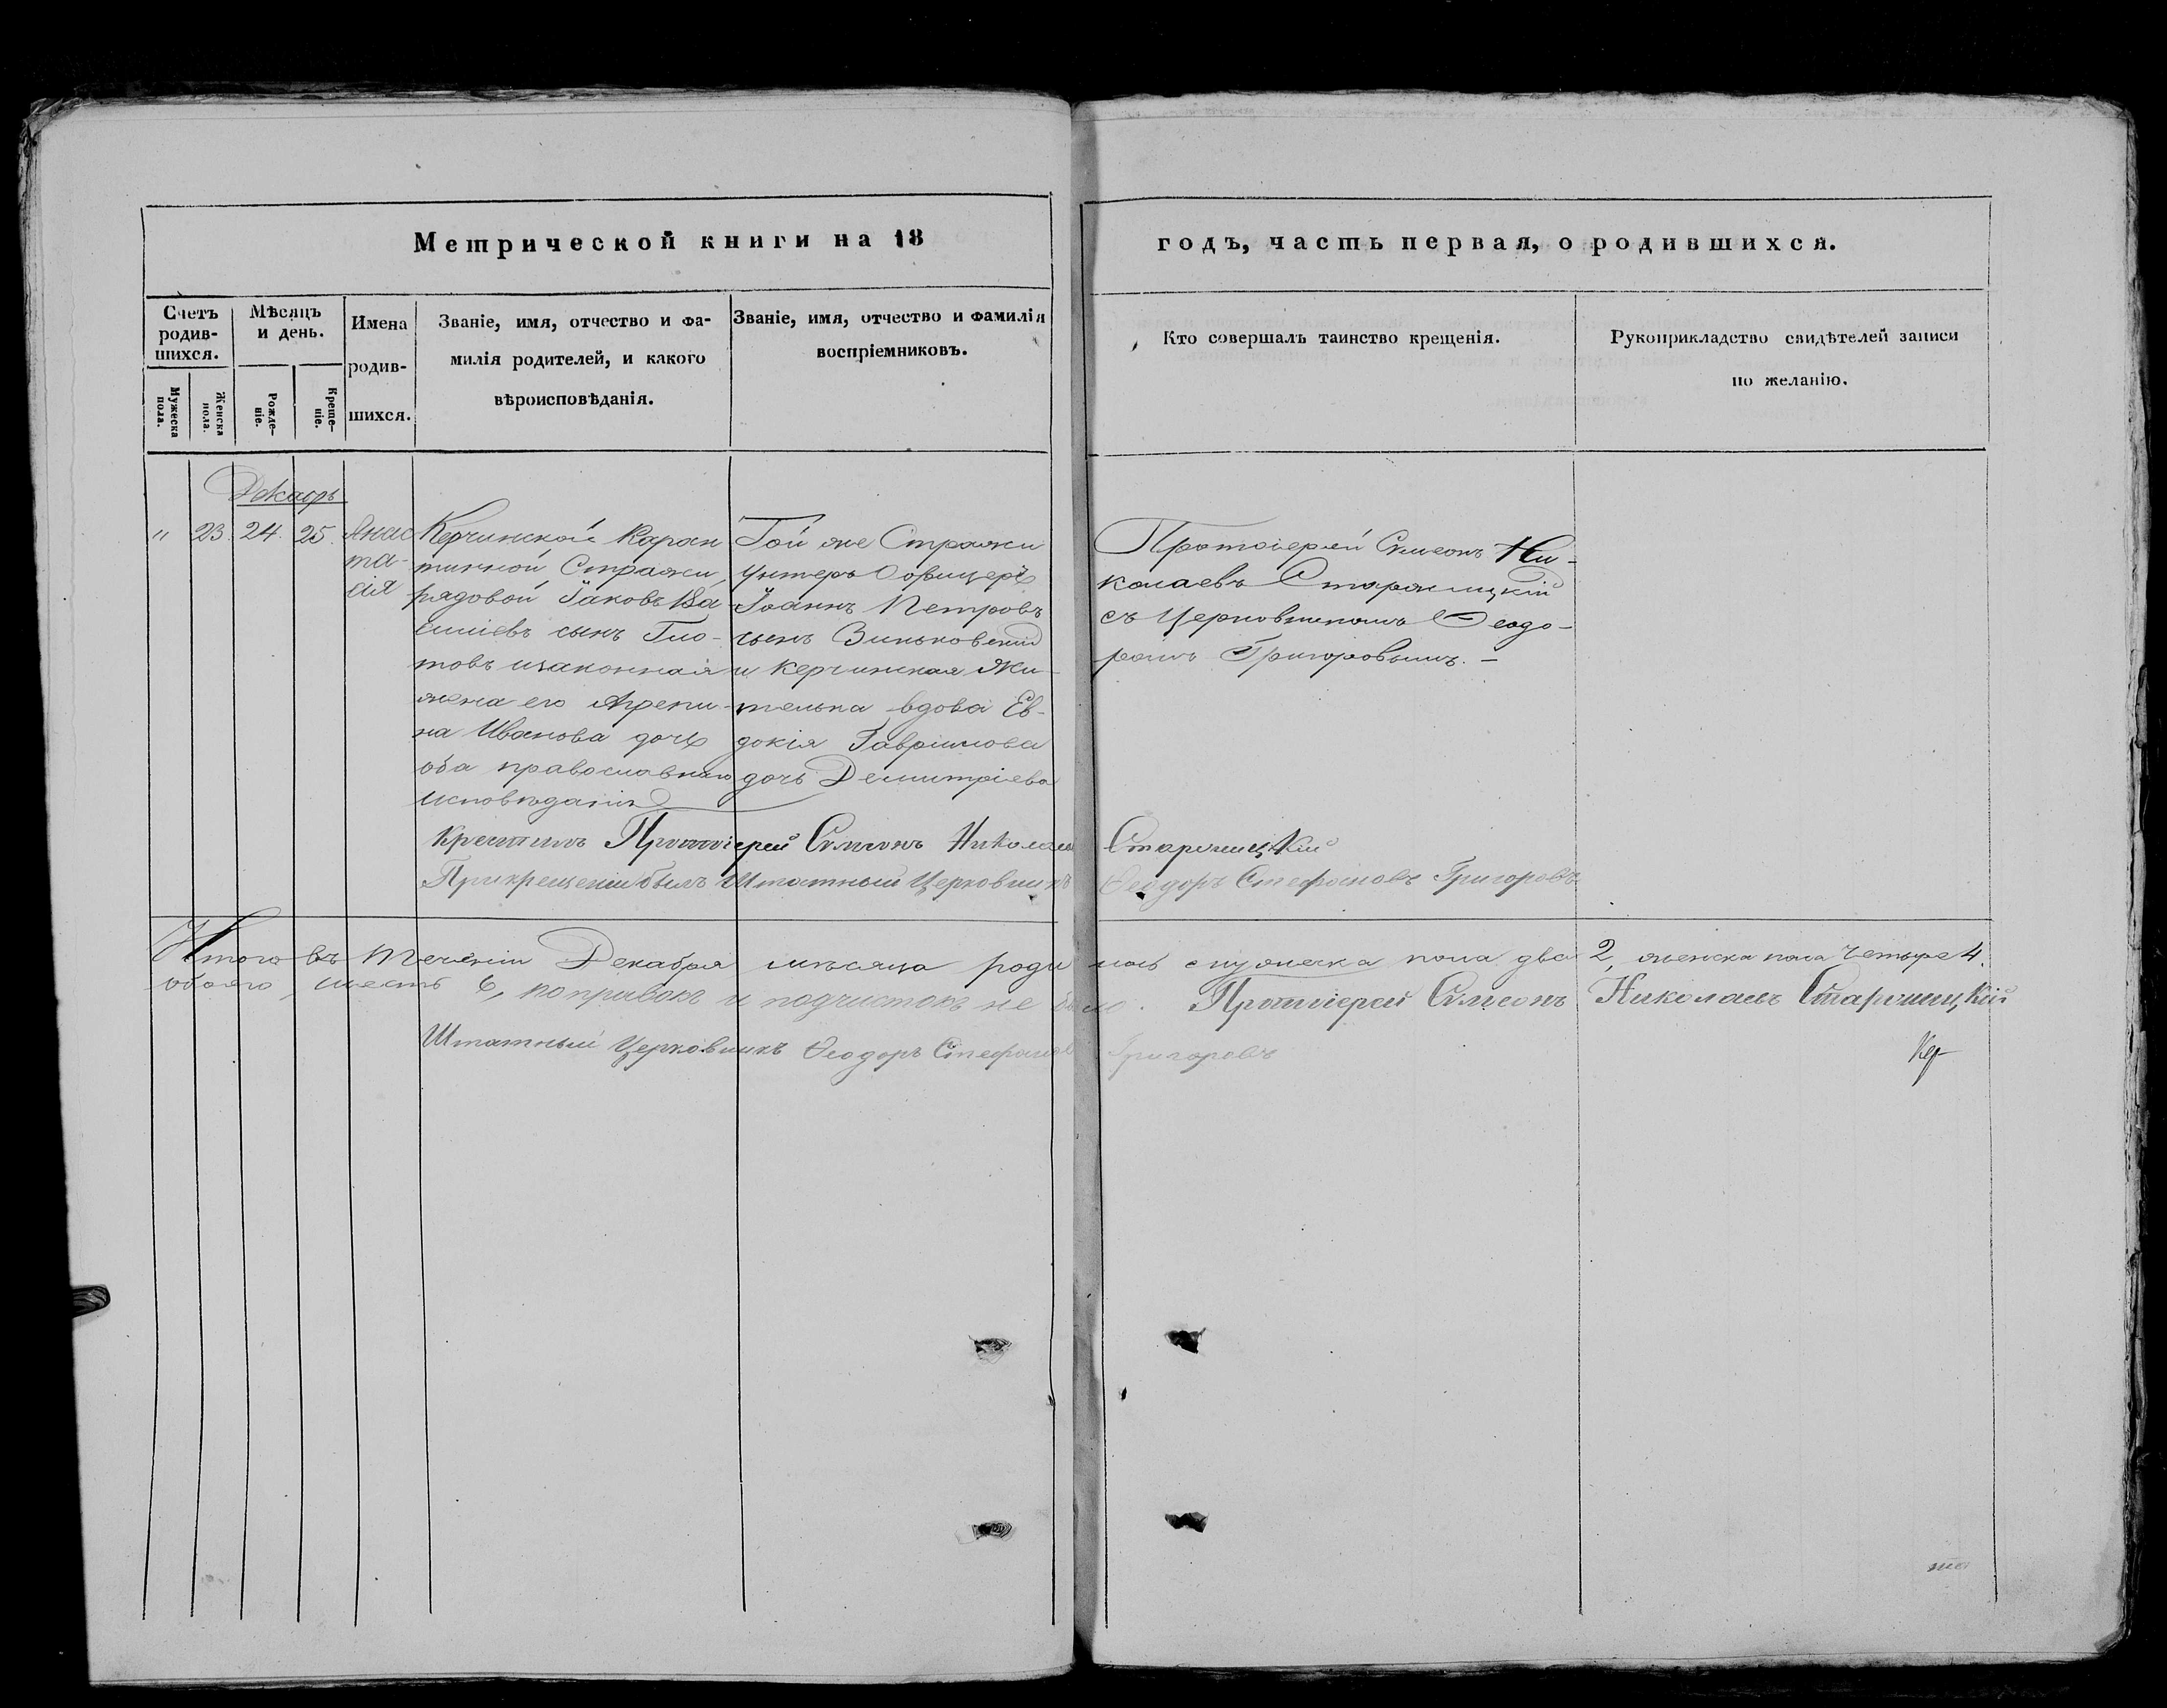 Метрической книги на 18
годъ, часть первая, о родившихся.
Счетъ родив-шихся.
Мужеска пола.
Женска пола.
Мѣсяцъ и день.
Рожде-ніе.
Креще-ніе.
Имена родив-шихся.
Званіе, имя, отчество и фа-
милія родителей, и какого
вѣроисповѣданія.
Званіе, имя, отчество и фамилія
воспріемниковъ.
Кто совершалъ таинство крещенія.
Рукоприкладство свидѣтелей записи
по желанію.
Декабрь
" 23. 24. 25.
Анас
та-
сія
Керчинской Каран
тинной Стражи,
рядовой Іаковъ Ва
силіевъ сынъ
товъ изаконная
жена его Агрепи-
на Иванова дочь
оба православнаго
исповѣданія
Той же Стражи
Унтеръ Офицеръ
Іоаннъ Петровъ
сынъ Зиньковскій
и Керчинская Жи-
телька вдова Ев-
докія Гаврилова
дочь Демитріева
Протоіерей Симеонъ Ни-
колаевъ Старошицкій
съ Церковникомъ Ѳеодо-
ромъ Григоровымъ. –
Крестилъ Протоіерей Симеонъ Николаевъ Старошицкій
При крещеніи былъ Штатный Церковникъ Ѳеодоръ Стефановъ Григоровъ
Итого въ теченіи Декабря мѣсяца родилось мужеска пола два 2, женска пола четыре 4.
обоего шесть 6, поправокъ и подчистокъ не было. Протоіерей Симеонъ Николаевъ Старошицкій
Штатный Церковникъ Ѳеодоръ Стефановъ Григоровъ